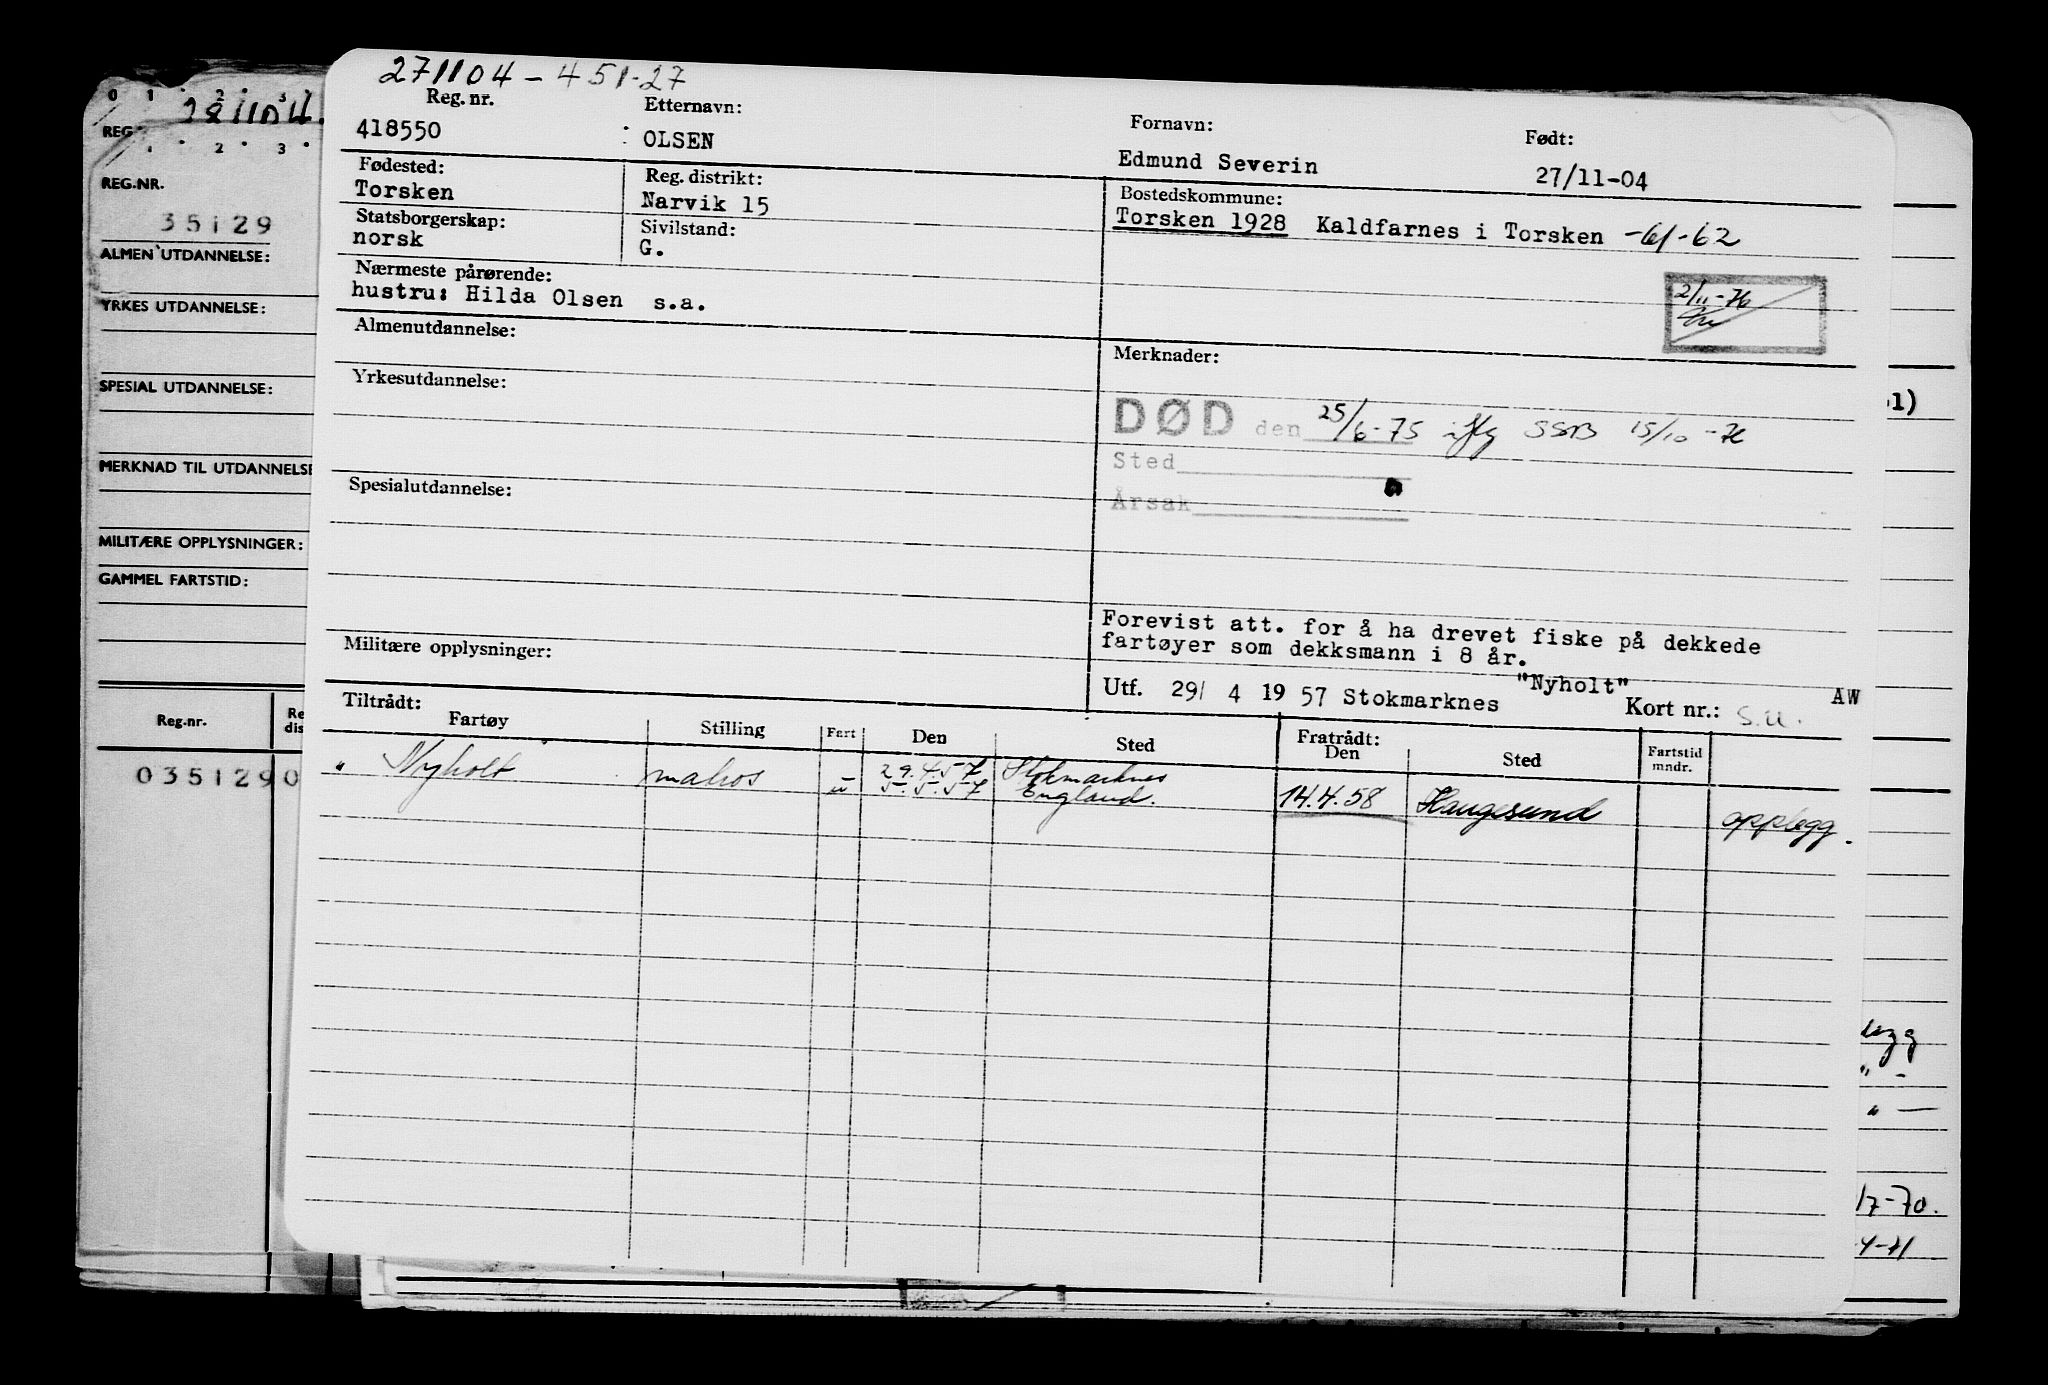 271104-451-27
Reg. nr. Etternavn: Fornavn: Født:
418550 OLSEN Edmund Severin 27/11-04
Fødested: Reg. distrikt: Bostedskommune:
Torsken Narvik 15 Torsken 1928 Kaldfarnes i Torsken -61-62
Statsborgerskap: Sivilstand:
norsk G.
Nærmeste pårørende:
hustru: Hilda Olsen s.a.
2/11-76
Almenutdannelse:
Merknader:
Yrkesutdannelse:
DØD den 25/6-75 iflg SSB 15/10-76
Sted
Årsak
Spesialutdannelse:
Forevist att. for å ha drevet fiske på dekkede
fartøyer som dekksmann i 8 år.
Militære opplysninger:
"Nyholt"
Utf. 29/ 4 19 57 Stokmarknes Kort nr.: S.U. AW
Tiltrådt: Fratrådt:
Fartøy Stilling Fart Den Sted Den Sted Fartstid mndr.
" Nyholt matros u 29.4.57 Stokmarknes
5.5.57 England. 14.4.58 Haugesund opplegg.
0 1 2 3
281104.
REG
1 2 3
REG.NR.
35129
ALMEN UTDANNELSE:
YRKES UTDANNELSE:
SPESIAL UTDANNELSE:
MERKNAD TIL UTDANNELSE
MILITÆRE OPPLYSNINGER:
GAMMEL FARTSTID:
Reg.nr. Re
dis
035129 0
1)
" -
" —
17-70.
4-71